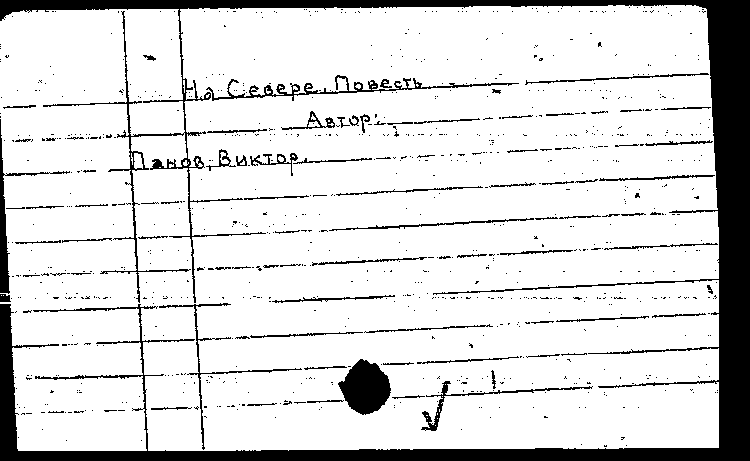 На Севере. Повесть
Автор:
Панов, Виктор.